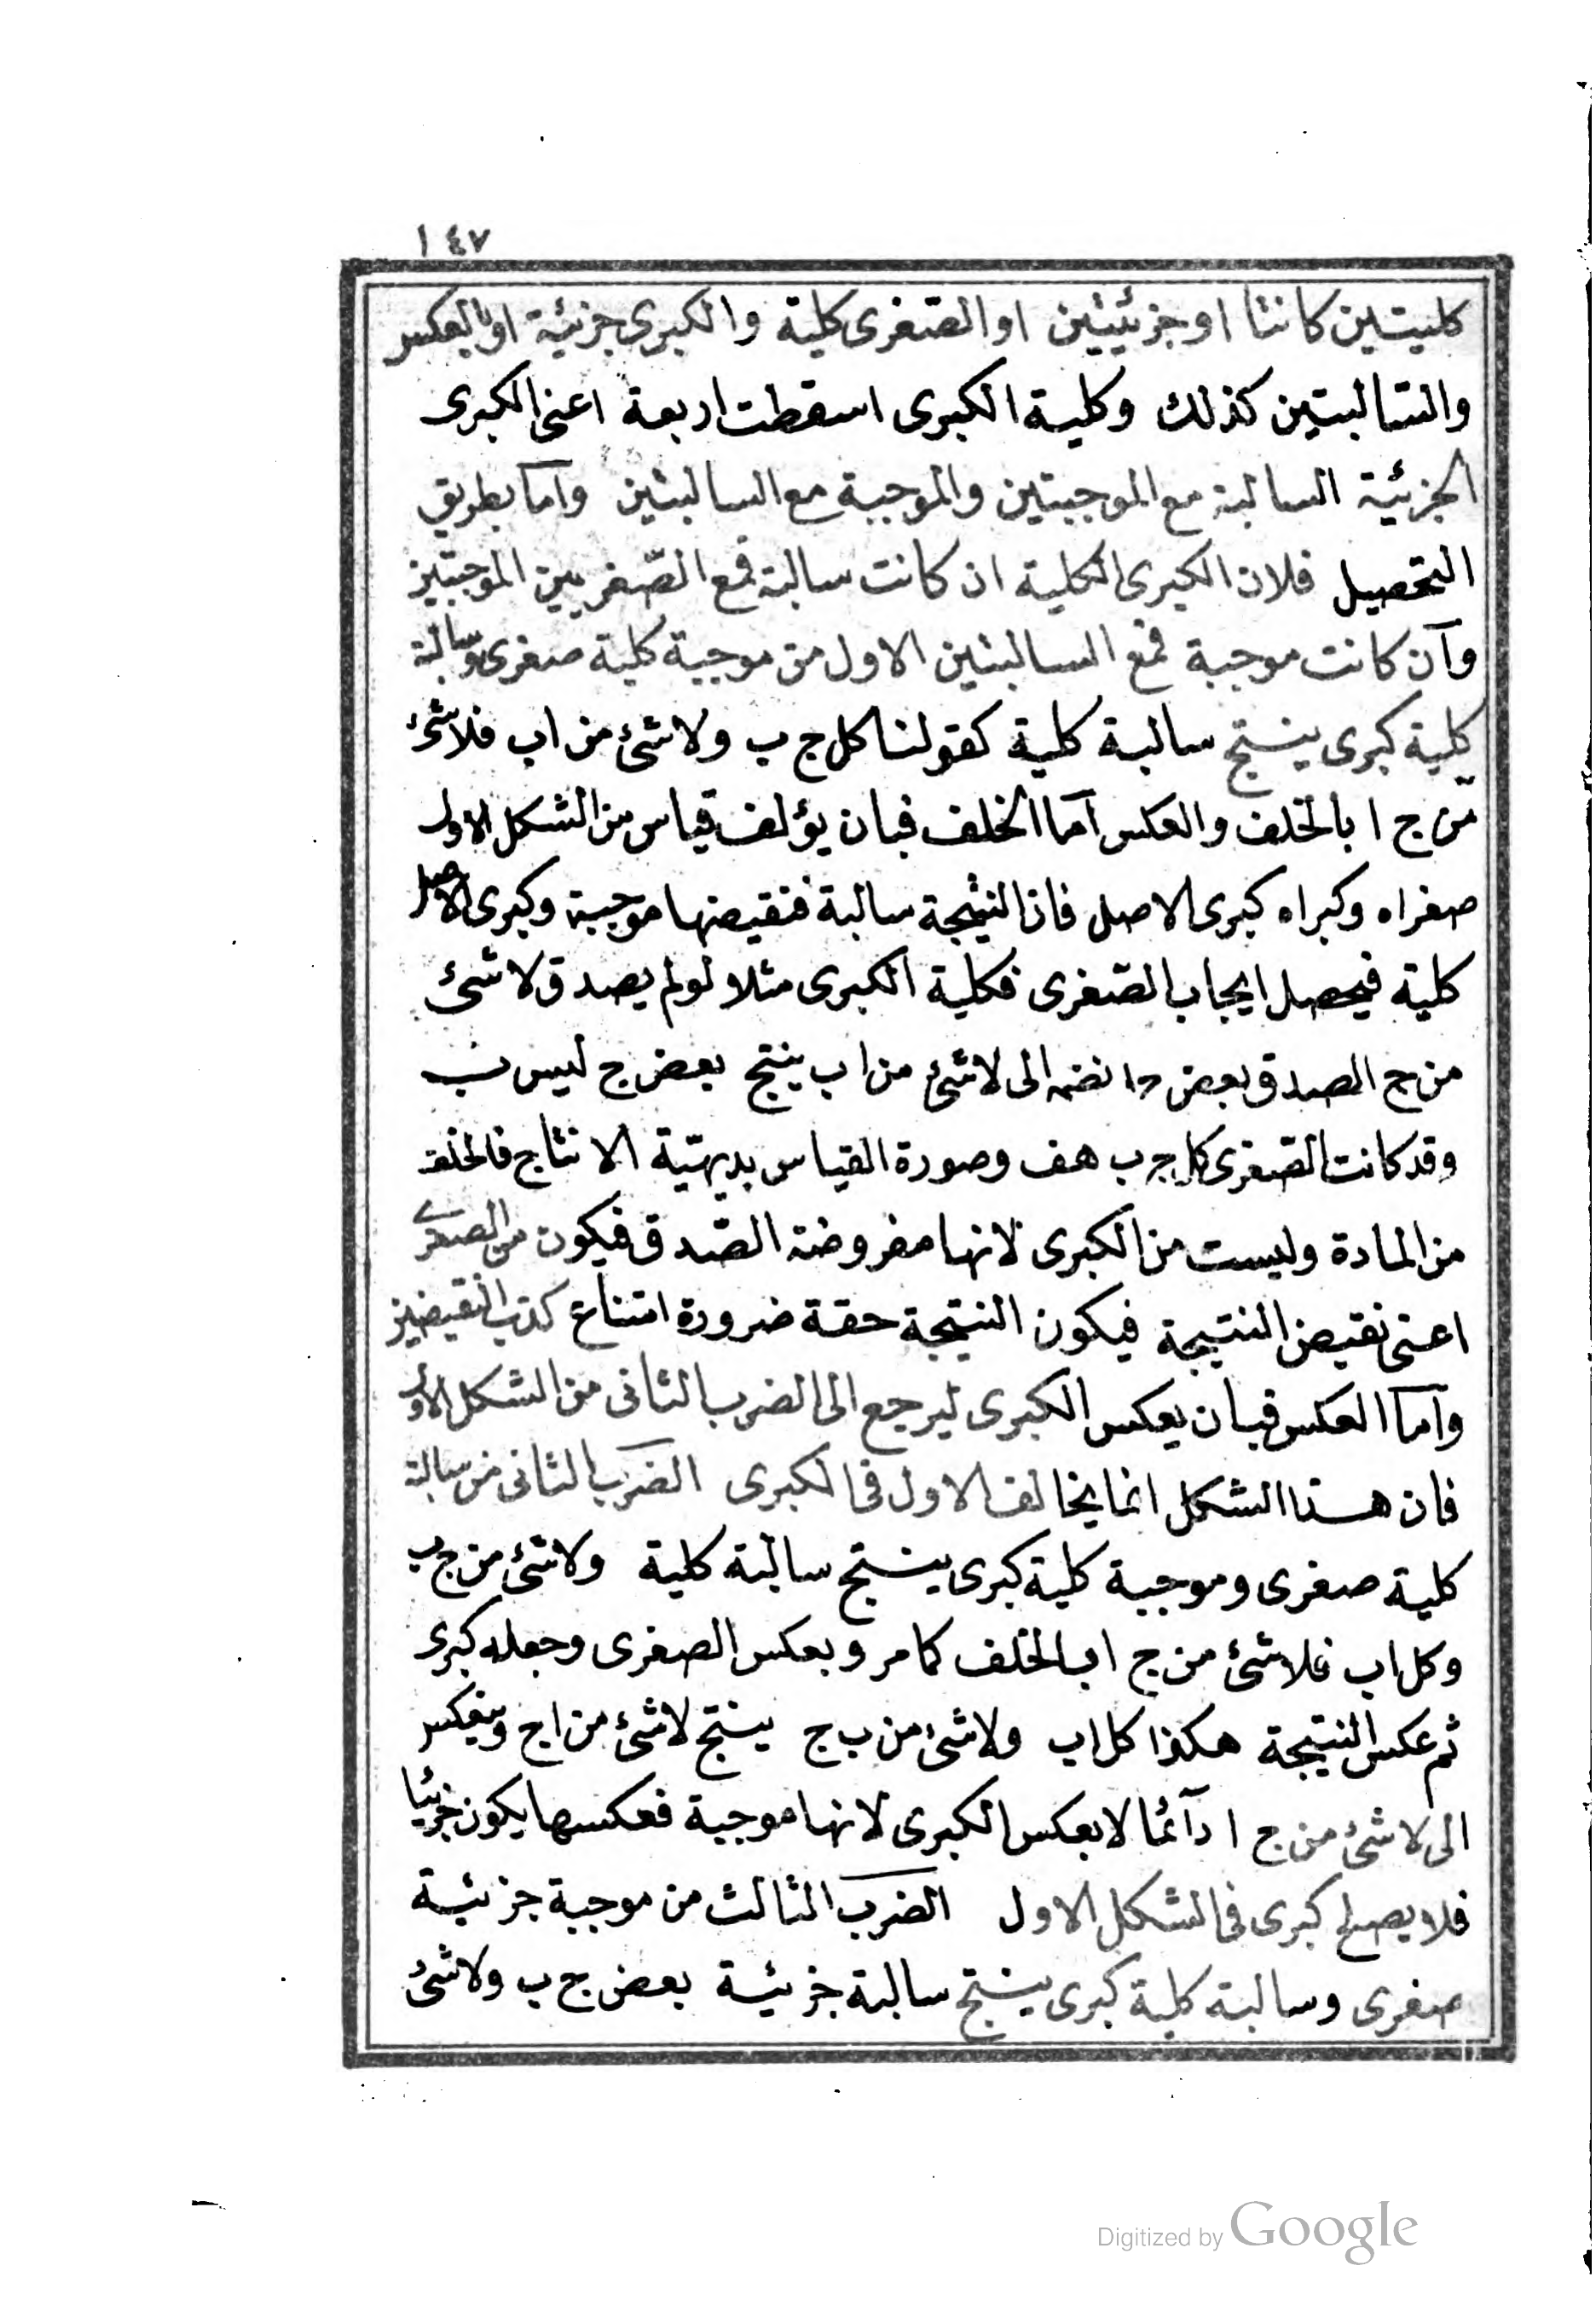 ١٤٧
كليتين كانتا اوجزئيتين اوالصغرى كلية والكبرى جزئية اوبالعكس
والسّالبتين كذلك وكلية الكبرى اسقطت اربعة اعنى الكبرى
الجزئية السالبة مع الموجبتين والموجبة مع السالبتين وامّا بطريق
التحصيل فلان الكبرى الكلية ان كانت سالبة فمع الصّغريين الموجبتين
وآن كانت موجبة فمع السالبتين الاول من موجبة كلية صغرى وسالبة
كلية كبرى ينتج سالبة كلية كقولنا كل ج ب ولاشئ من اب فلاشئ
من ج ا بالخلف والعكس آمّا الخلف فبان يؤلف قياس من الشكل الاول
صغراه وكبراه كبرى الاصل فاذ النتيجة سالبة فنقيضها موجبة وكبرى الاصل
كلية فيحصل ايجاب الصّغرى فكلية الكبرى مثلا لولم يصدق لاشئ
من ج الصدق بعض ج ا نضمه الى لاشئ من اب ينتج بعض ج ليس ب
وقدكانت الصّغرى كل ج ب هف وصورة القياس بديهيّة الانتاج فالخلف
من المادة وليست من الكبرى لانها مفروضة الصّدق فيكون من الصغرى
اعنى نقيض النتيجة فيكون النتيجة حقة ضرورة امتناع كذب النقيضين
وآمّا العكس فبان يعكس الكبرى ليرجع الى الضرب الثانى من الشكل الاول
فان هذا الشكل انما يخالف الاول فى الكبرى الضرب الثانى من سالبة
كلية صغرى وموجبة كلية كبرى ينتج سالبة كلية ولاشئ من ج ب
وكل اب فلاشئ من ج ا بالخلف كمامر وبعكس الصغرى وجعله كبرى
ثم عكس النتيجة هكذا كل اب ولاشئ من ب ج ينتج لاشئ من اج وينعكس
الى لاشئ من ج ا دآئما لابعكس الكبرى لانها موجبة فعكسها يكون جزئيا
فلايصلح كبرى فى الشكل الاول الضرب الثالث من موجبة جزئية
صغرى وسالبة كلية كبرى ينتج سالبة جزئية بعض ج ب ولاشئ
Digitized by Google